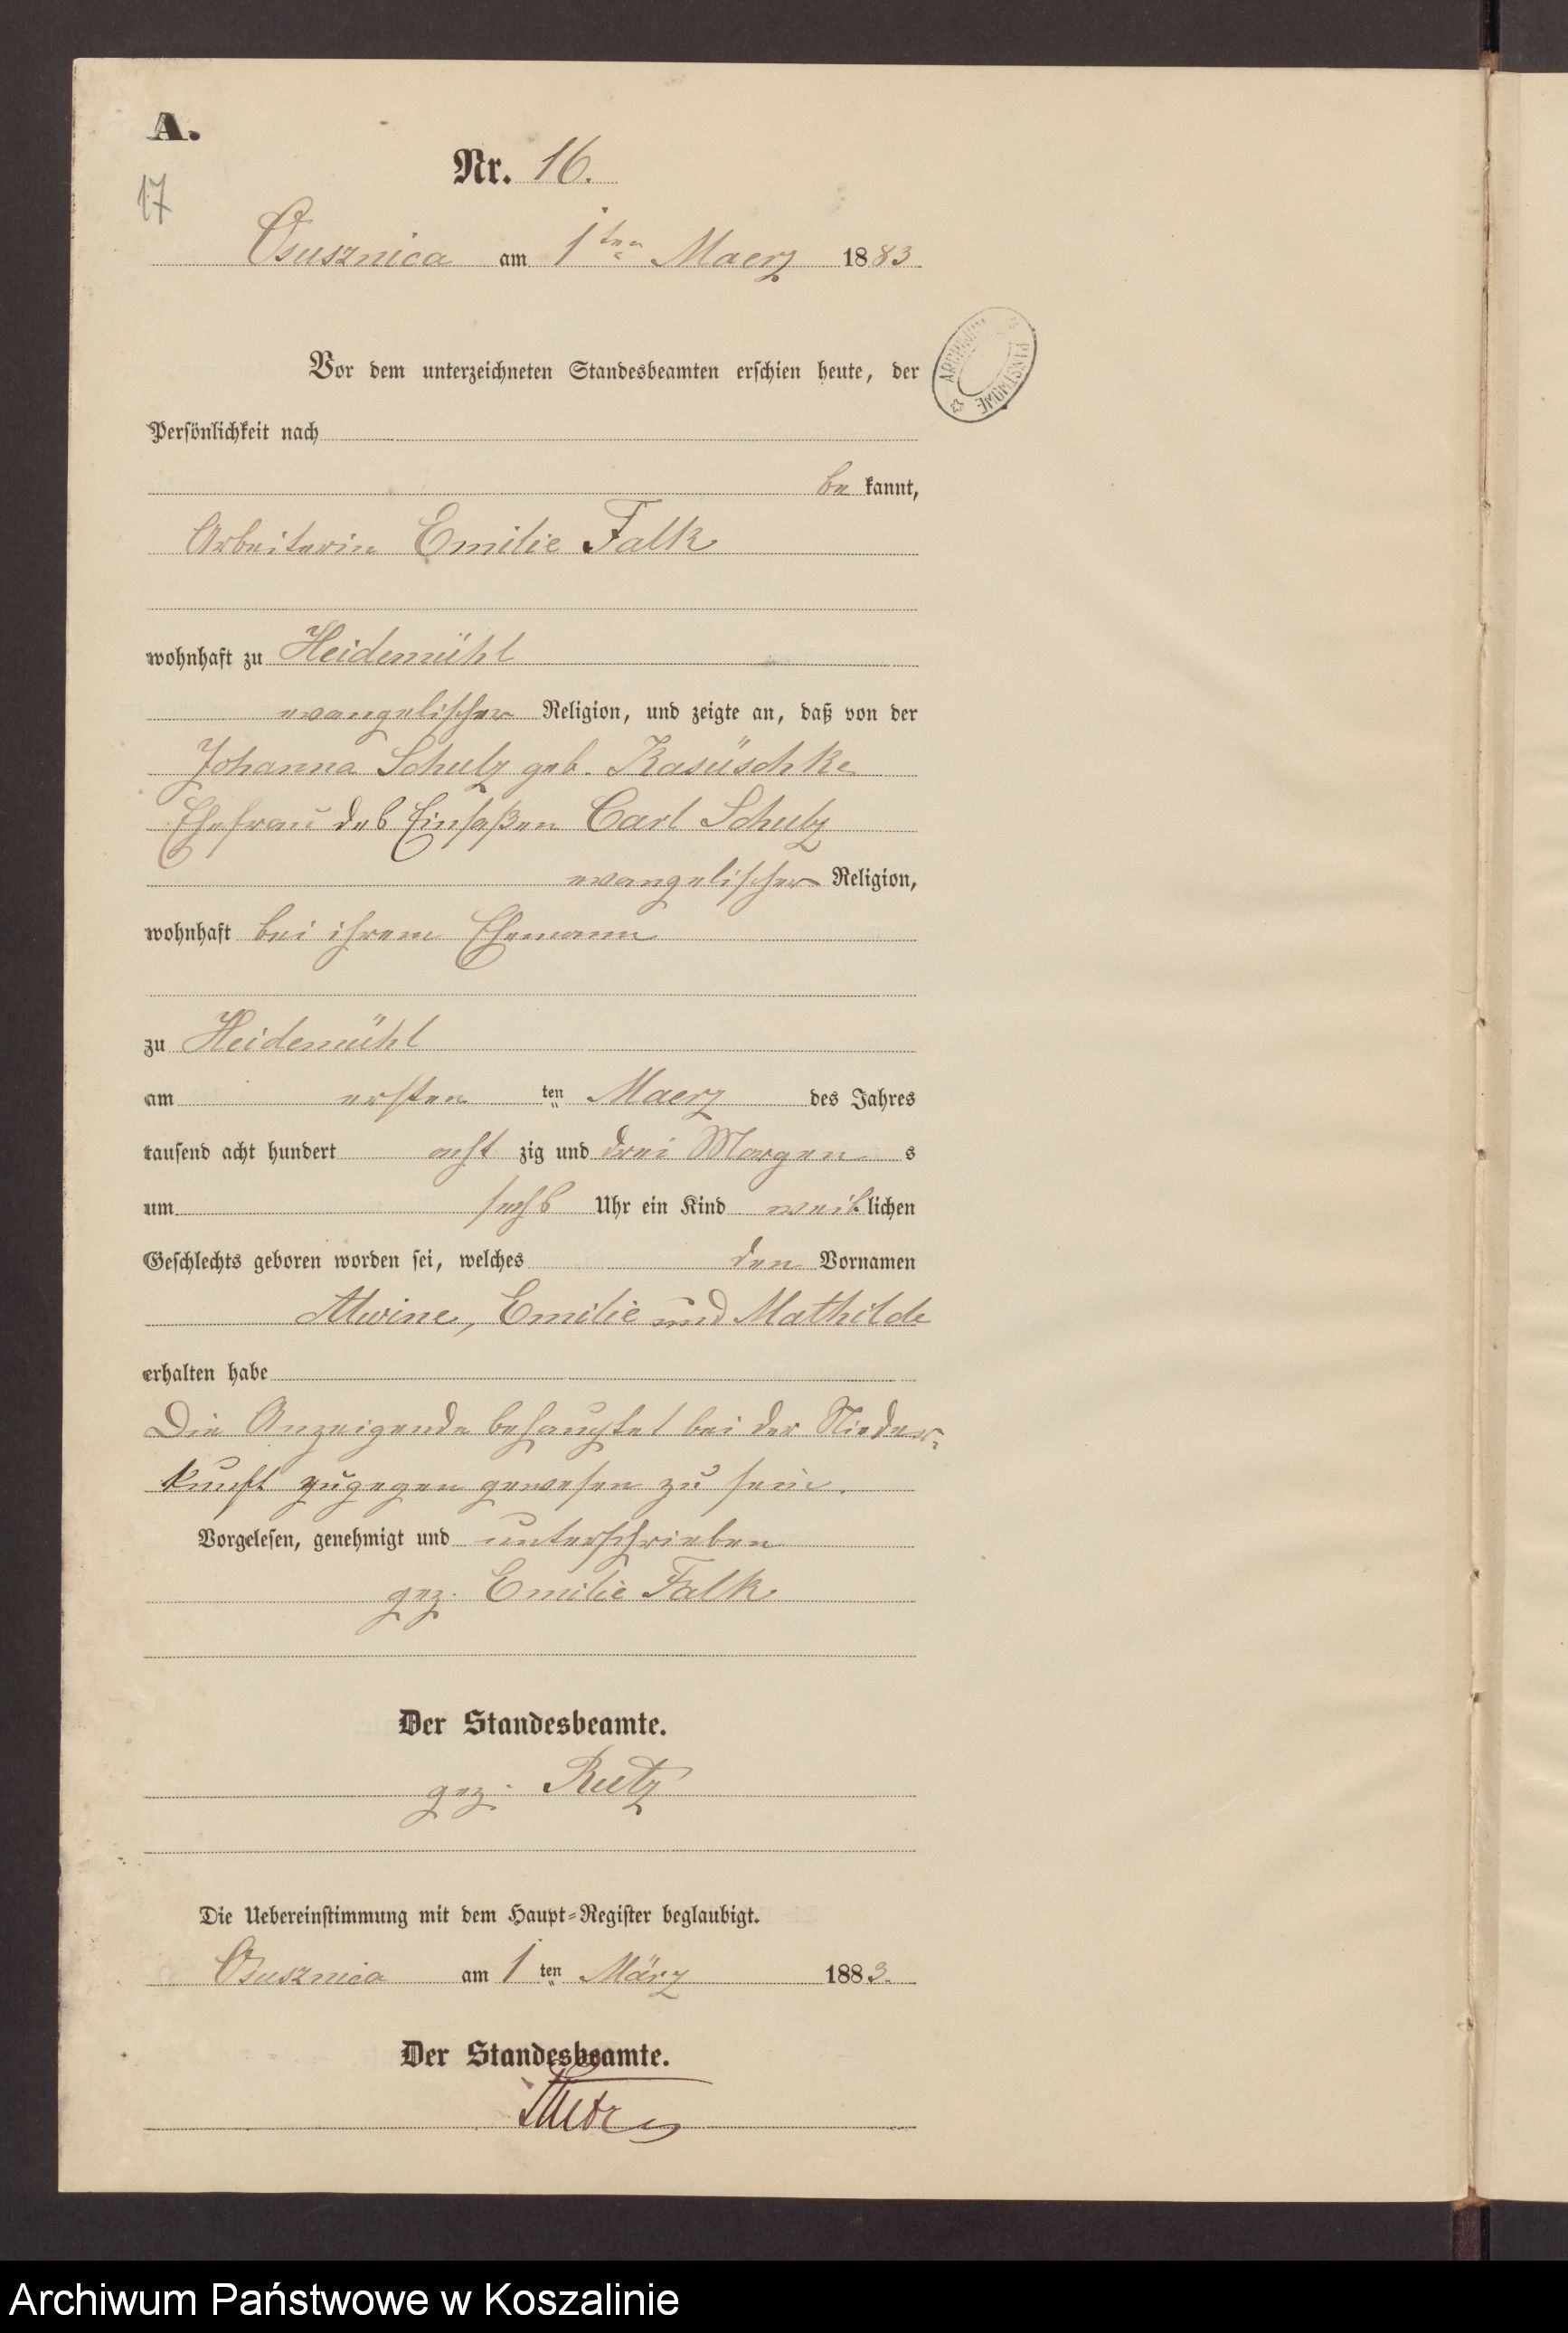 A.
Nr. 16.
17
Osusznica am 1ten Maerz 1883
Vor dem unterzeichneten Standesbeamten erschien heute, der
Persönlichkeit nach
be kannt,
Arbeiterin Emilie Falk
wohnhaft zu Heidemühl
evangelischer Religion, und zeigte an, daß von der
Johanna Schulz geb. Kasüschke
Ehefrau des Einsaßen Carl Schulz
evangelischer Religion,
wohnhaft bei ihrem Ehemann
zu Heidemühl
am ersten ten Maerz des Jahres
tausend acht hundert acht zig und drei Morgen s
um sechs Uhr ein Kind weiblichen
Geschlechts geboren worden sei, welches den Vornamen
Alwine, Emilie und Mathilde
erhalten habe
Die Anzeigende behauptet bei der Nieder-
kunft zugegen gewesen zu sein.
Vorgelesen, genehmigt und unterschrieben
gez. Emilie Falk
Der Standesbeamte.
gez. Rutz
Die Uebereinstimmung mit dem Haupt-Register beglaubigt.
Osusznica am 1 ten März 1883.
Der Standesbeamte.
ARCHIWUM PAŃSTWOWE
Archiwum Państwowe w Koszalinie